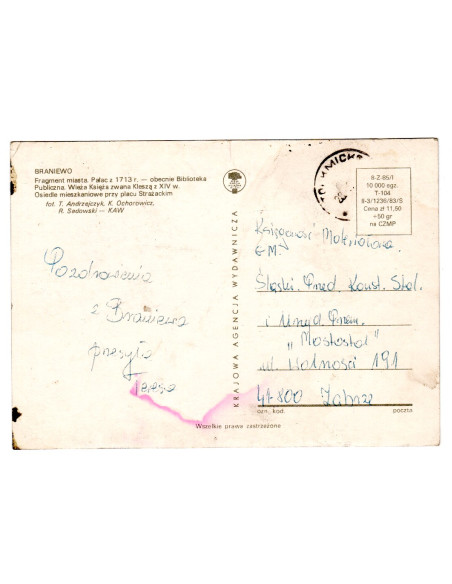 BRANIEWO
Fragment miasta. Pałac z 1713 r. — obecnie Biblioteka
Publiczna. Wieża Księża zwana Kleszą z XIV w.
Osiedle mieszkaniowe przy placu Strażackim
fot. T. Andrzejczyk, K. Ochorowicz,
R. Sadowski — KAW
Pozdrowienia
z Braniewa
przesyła
Teresa
KRAJOWA AGENCJA WYDAWNICZA
II-Z-85/I
10 000 egz.
T-104
II-3/1236/83/S
Cena zł 11,50
+50 gr
na CZMP
Księgowość Materiałowa
GM.
Śląski Przed. Konst. Stal.
i Urząd. Przem.
„Mostostal"
ul. Wolności 191
41-800 Zabrze
ozn. kod.
poczta
Wszelkie prawa zastrzeżone